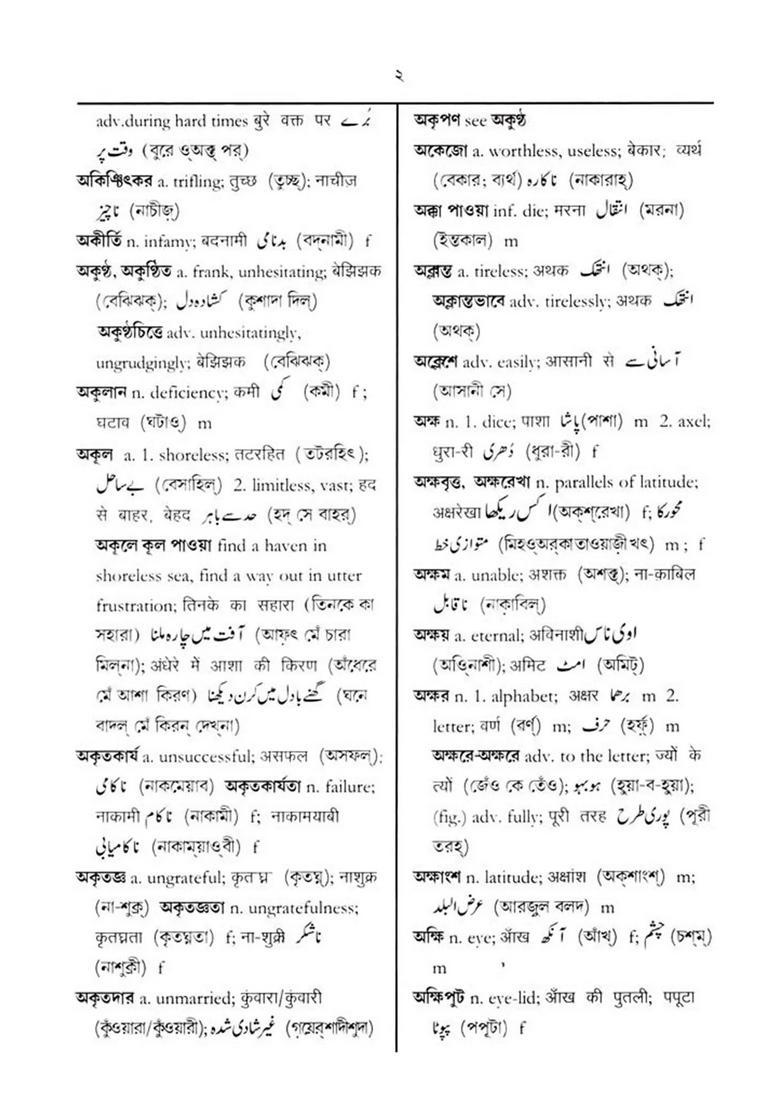 ২
adv.during hard times बुरे वक्त पर بُرے
وقت پر (বুরে ওঅক্ত পর্)
অকিঞ্চিৎকর a. trifling; तुच्छ (তুচ্ছ); नाचीज़
ناچیز (নাচীজ়)
অকীর্তি n. infamy; बदनामी بدنامی (বদ্‌নামী) f
অকুণ্ঠ, অকুণ্ঠিত a. frank, unhesitating; बेझिझक
(বেঝিঝক্); کشادہ دل (কুশাদা দিল্)
অকুণ্ঠচিত্তে adv. unhesitatingly,
ungrudgingly; बेझिझक (বেঝিঝক্)
অকুলান n. deficiency; कमी کمی (কমী) f ;
घटाव (ঘটাও) m
অকূল a. 1. shoreless; तटरहित (তটরহিৎ);
بے ساحل (বেসাহিল্) 2. limitless, vast; हद
से बाहर, बेहद حد سے باہر (হদ্ সে বাহর্)
অকূলে কূল পাওয়া find a haven in
shoreless sea, find a way out in utter
frustration; तिनके का सहारा (তিনকে কা
সহারা) آفت میں چارہ ملنا (আফৎ মেঁ চারা
মিল্‌না); अंधेरे में आशा की किरण (আঁধেরে
মেঁ আশা কিরণ) گھنے بادل میں کرن دیکھنا (ঘনে
বাদল্ মেঁ কিরন্ দেখ্‌না)
অকৃতকার্য a. unsuccessful; असफल (অসফল্);
ناکامی (নাকমেয়াব) অকৃতকার্যতা n. failure;
नाकामी ناکام (নাকামী) f; नाकामयाबी
ناکامیابی (নাকাম্‌য়াওবী) f
অকৃতজ্ঞ a. ungrateful; कृतघ्न (কৃতঘ্ন); नाशुक्र
(না-শুক্র) অকৃতজ্ঞতা n. ungratefulness;
कृतघ्नता (কৃতঘ্নতা) f; ना-शुक्री ناشکر
(নাশুক্রী) f
অকৃতদার a. unmarried; कुंवारा/कुंवारी
(কুঁওয়ারা/কুঁওয়ারী); غیر شادی شدہ (গ়য়ের্‌শাদীশুদা)
অকৃপণ see অকুণ্ঠ
অকেজো a. worthless, useless; बेकार; व्यर्थ
(বেকার; ব্যর্থ) ناکارہ (নাকারাহ্)
অক্কা পাওয়া inf. die; मरना انتقال (মরনা)
(ইন্তকাল) m
অক্লান্ত a. tireless; अथक انتھک (অথক্);
অক্লান্তভাবে adv. tirelessly; अथक انتھک
(অথক্)
অক্লেশে adv. easily; आसानी से آسانی سے
(আসানী সে)
অক্ষ n. 1. dice; पाशा پاشا (পাশা) m 2. axel;
धुरा-री دُھری (ধুরা-রী) f
অক্ষবৃত্ত, অক্ষরেখা n. parallels of latitude;
अक्षरेखा اکس ریکھا (অক্‌শ্‌রেখা) f; محور کا
متوازی خط (মিহওঅর্‌কা তাওয়াজ়ী খৎ) m ; f
অক্ষম a. unable; अशक्त (অশক্ত); ना-क़ाबिल
ناقابل (নাক়াবিল্)
অক্ষয় a. eternal; अविनाशी اوی ناس
(অওি্নাশী); अमिट امٹ (অমিট্)
অক্ষর n. 1. alphabet; अक्षर m 2.
letter; वर्ण (বর্ণ্) m; حرف (হর্ফ্) m
অক্ষরে-অক্ষরে adv. to the letter; ज्यों के
त्यों (জেঁও কে তেঁও); ہوبہو (হুয়া-ব-হুয়া);
(fig.) adv. fully; पूरी तरह پوری طرح (পূরী
তরহ্)
অক্ষাংশ n. latitude; अक्षांश (অক্‌শাংশ্) m;
عرض البلد (আরজুল বলদ) m
অক্ষি n. eye; आँख آنکھ (আঁখ্) f; چشم (চশ্‌ম্)
m
অক্ষিপুট n. eye-lid; आँख की पुतली; पपूटा
پپوٹا (পপূটা) f